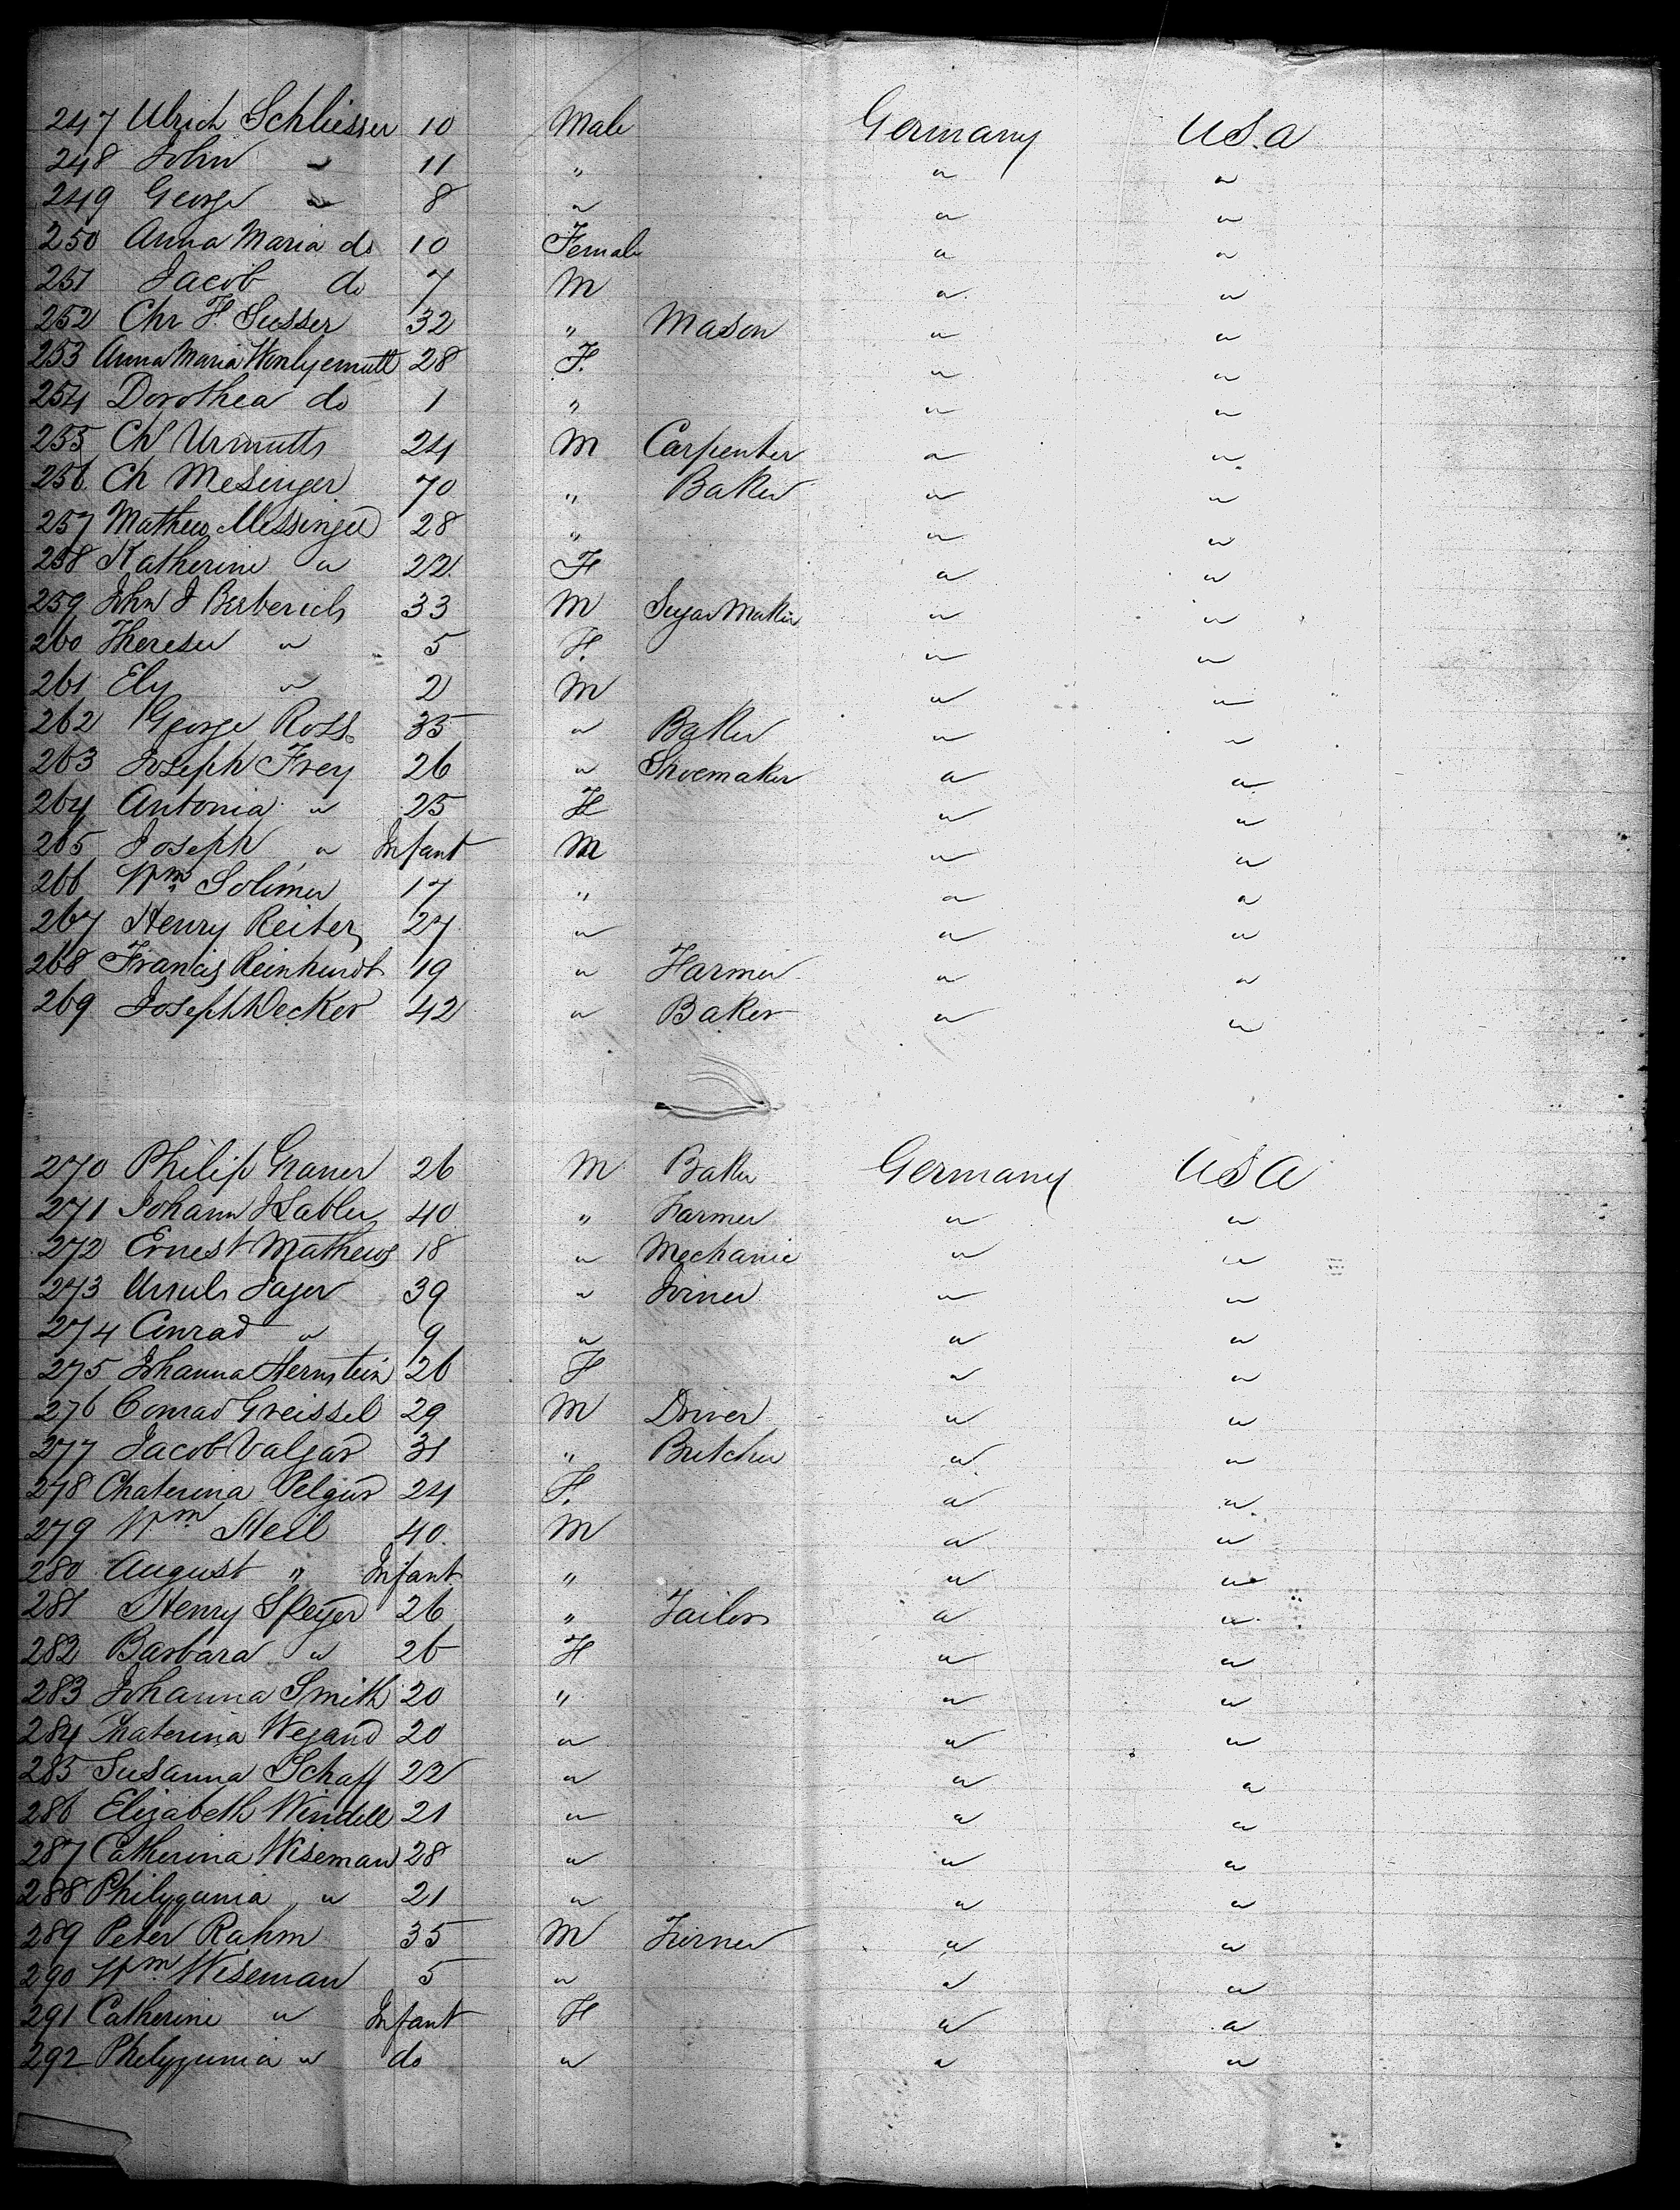 247 Ulrich Schliesser 10 Male Germany U.S.A
248 John " 11 " " "
249 George " 8 " " "
250 Anna Maria do 10 Female " "
251 Jacob do 7 M " "
252 Chr F. Susser 32 " Mason " "
253 Anna Maria 28 F. " "
254 Dorothea do 1 " " "
255 Ch Urmutts 24 M Carpenter " "
256 Ch Mesinger 70 " Baker " "
257 Mathew Messinger 28 " " "
258 Katherine " 22 F " "
259 John J Berberich 33 M Sugar Maker " "
260 Theresa " 5 F. " "
261 Ely " 2 M " "
262 George Ross 35 " Baker " "
263 Joseph Frey 26 " Shoemaker " "
264 Antonia " 25 F " "
265 Joseph " Infant M " "
266 Wm Solimer 17 " " "
267 Henry Reiter 27 " " "
268 Francis Reinhurdt 19 " Farmer " "
269 Joseph Decker 42 " Baker " "
270 Philip Graner 26 M Baker Germany U S A
271 Johann 40 " Farmer " "
272 Ernest Mathews 18 " Mechanic " "
273 Ursuls Jager 39 " Joiner " "
274 Conrad " 9 " " "
275 Johanna Hernstein 26 F " "
276 Conrad Greissel 29 M Driver " "
277 Jacob Valgar 31 " Butcher " "
278 Chaterina Pelgur 24 F. " "
279 Wm Steil 40 M " "
280 August " Infant " " "
281 Henry Speyer 26 " Tailor " "
282 Barbara " 26 F " "
283 Johanna Smith 20 " " "
284 Chaterina Wegand 20 " " "
285 Susanna Schaff 22 " " "
286 Elizabeth Windell 21 " " "
287 Catherina Wiseman 28 " " "
288 Philyguma " 21 " " "
289 Peter Rahm 35 M Turner " "
290 Wm Wiseman 5 " " "
291 Catherine " Infant F " "
292 Philyguma " do " " "